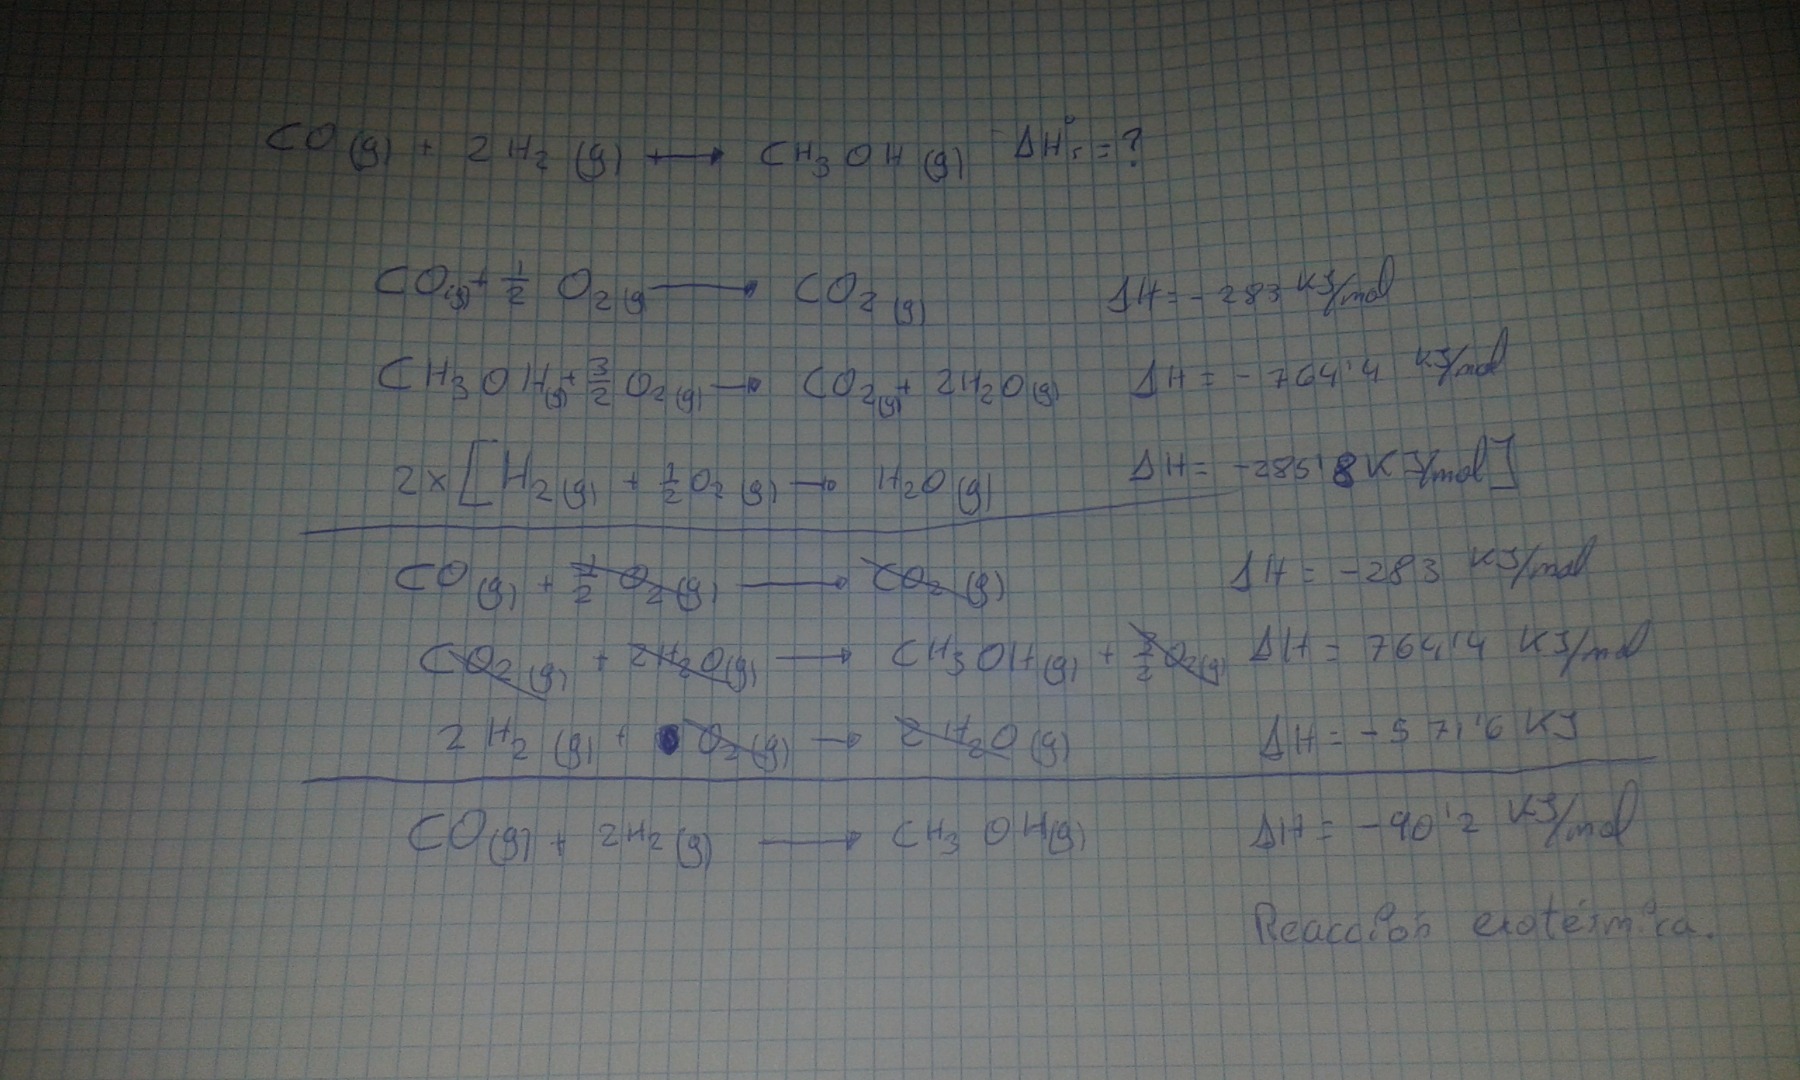 CO(g) + 2H₂(g) ⟶ CH₃OH(g) ΔH°r = ?
CO(g) + 1/2 O₂(g) ⟶ CO₂(g) ΔH = -283 KJ/mol
CH₃OH(g) + 3/2 O₂(g) ⟶ CO₂(g) + 2H₂O(g) ΔH = -764'4 KJ/mol
2x[H₂(g) + 1/2 O₂(g) ⟶ H₂O(g) ΔH = -285'8 KJ/mol]
CO(g) + 1/2 O₂(g) ⟶ CO₂(g) ΔH = -283 KJ/mol
CO₂(g) + 2H₂O(g) ⟶ CH₃OH(g) + 3/2 O₂(g) ΔH = 764'4 KJ/mol
2H₂(g) + O₂(g) ⟶ 2H₂O(g) ΔH = -571'6 KJ
CO(g) + 2H₂(g) ⟶ CH₃OH(g) ΔH = -90'2 KJ/mol
Reacción exotérmica.